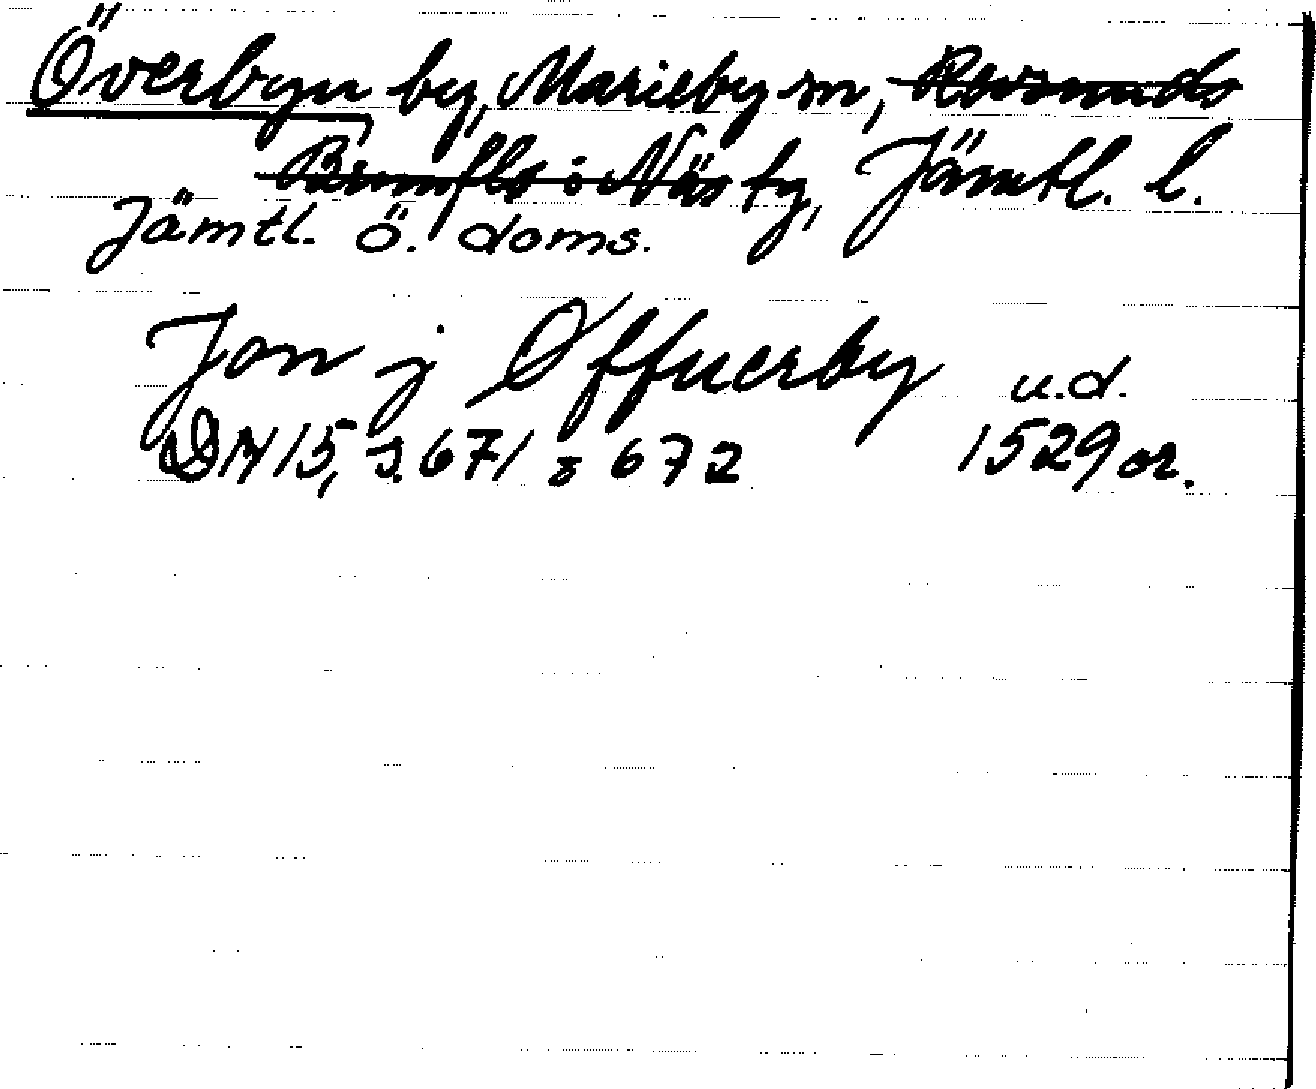 Överbyn by, Marieby sn, Revsunds
Brunflo o Näs tg, Jämtl. l.
Jämtl. ö. doms.
Jon j Øffuerby u.d.
DN 15, s. 671 o 672 1529 or.